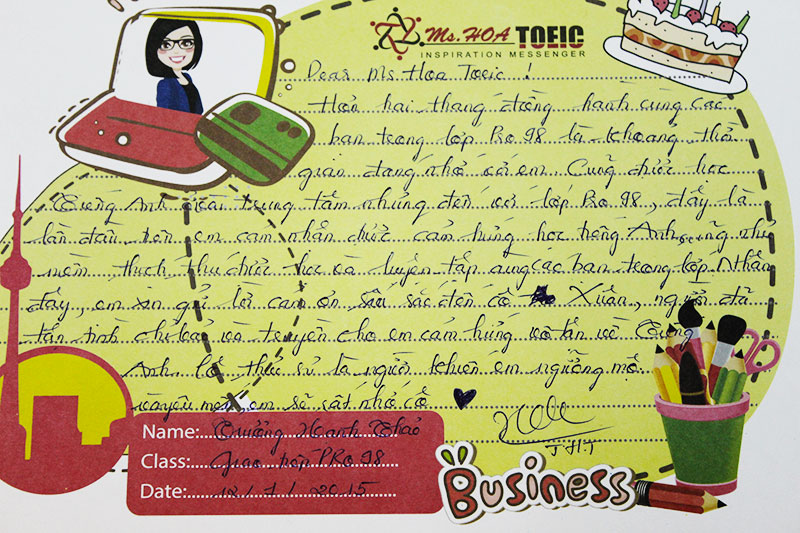 Ms. HOA TOEIC
INSPIRATION MESSENGER
Dear Ms. Hoa Toeic !
Hơn hai tháng đồng hành cùng các
bạn trong lớp Pro 98 là khoảng thời
gian đáng nhớ với em. Cũng được học
Tiếng Anh ngoài trung tâm nhưng đến với lớp Pro 98, đấy là
lần đầu tiên em cảm nhận được cảm hứng học tiếng Anh cũng như
niềm thích thú được học và luyện tập cùng các bạn trong lớp. Nhân
đây, em xin gửi lời cảm ơn sâu sắc đến cô Xuân, người đã
tận tình chỉ bảo và truyền cho em cảm hứng vô tận về Tiếng
Anh. Cô thực sự là người khiến em ngưỡng mộ
và yêu mến, em sẽ rất nhớ cô
JHT
Name: Trương Hạnh Thảo
Class: Giao tiếp PRO 98
Date: 12 / 7 / 2015
Business